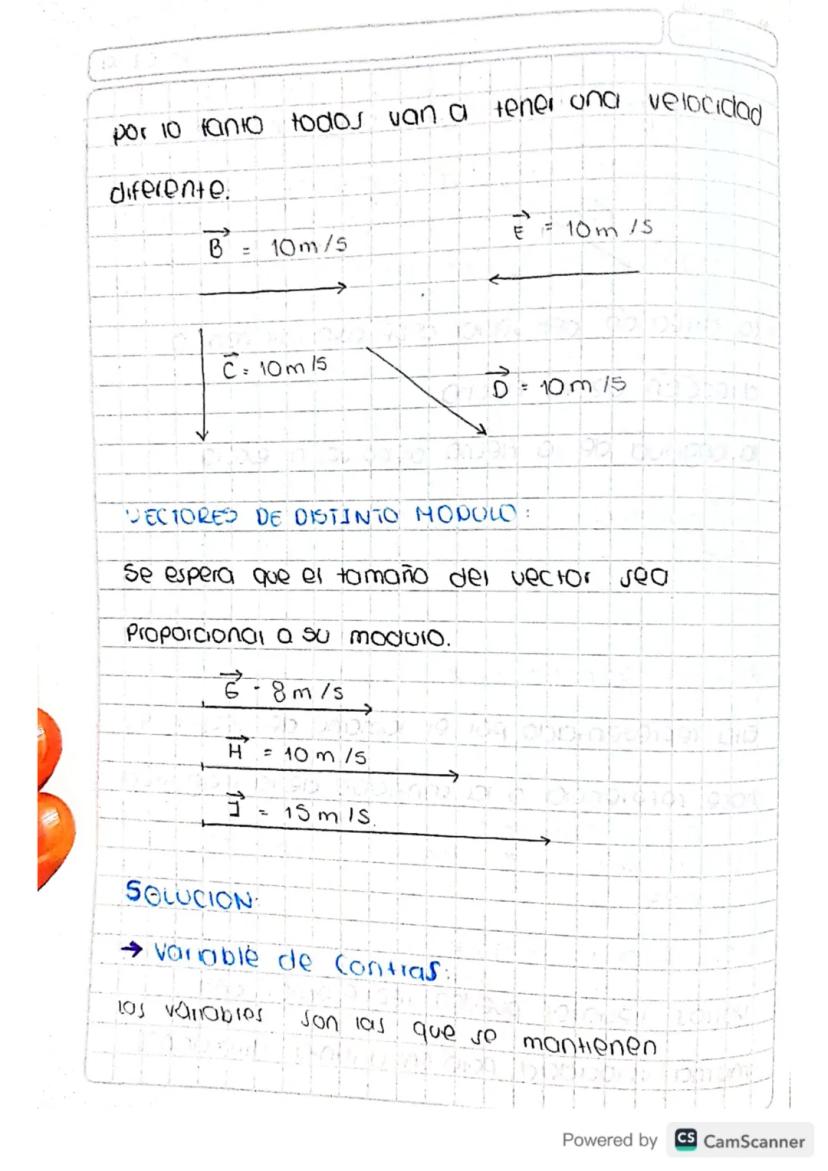 por lo tanto todos van a tener una velocidad
diferente.
B = 10m/s
E = 10m/s
C = 10m/s
D = 10m/s
VECTORES DE DISTINTO MODULO:
Se espera que el tamaño del vector sea
Proporcional a su modulo.
G - 8m/s
H = 10 m/s
J = 15 m/s.
SOLUCION:
→ Variable de Contras.
los variables son las que se mantienen
Powered by CS CamScanner